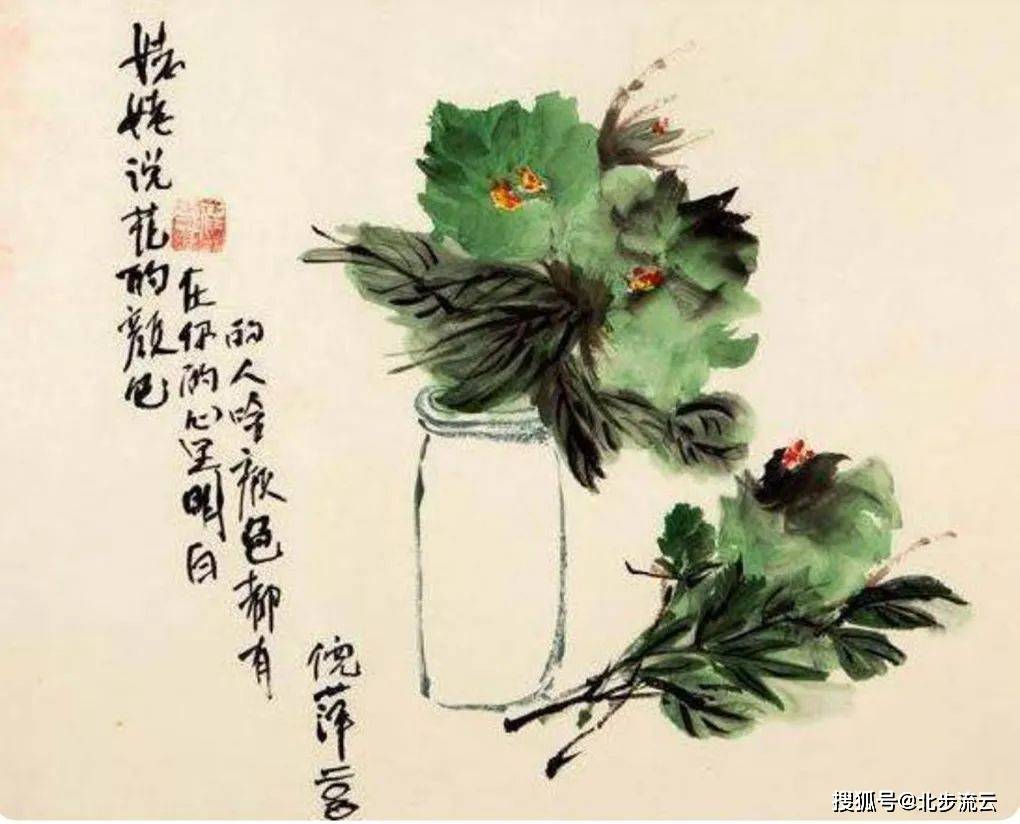 姥姥说花的颜色
在你的心里明白
的人啥颜色都有
倪萍
搜狐号@北步流云